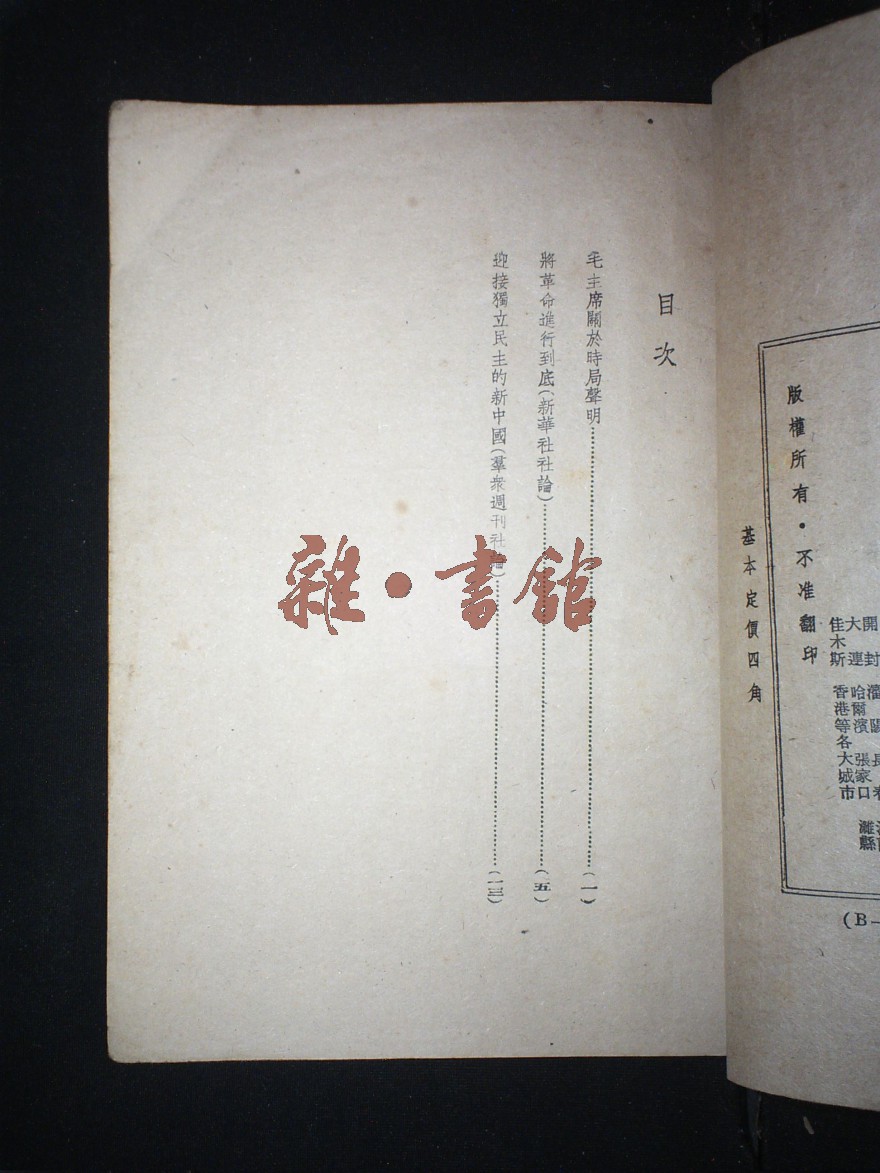 目次
毛主席關於時局聲明……(一)
將革命進行到底(新華社社論)……(五)
迎接獨立民主的新中國(羣衆週刊社論)……(一三)
雜·書館
開封
大連
佳木斯
哈爾濱
張家口
香港等各大城市
版權所有·不准翻印
基本定價四角
(B—